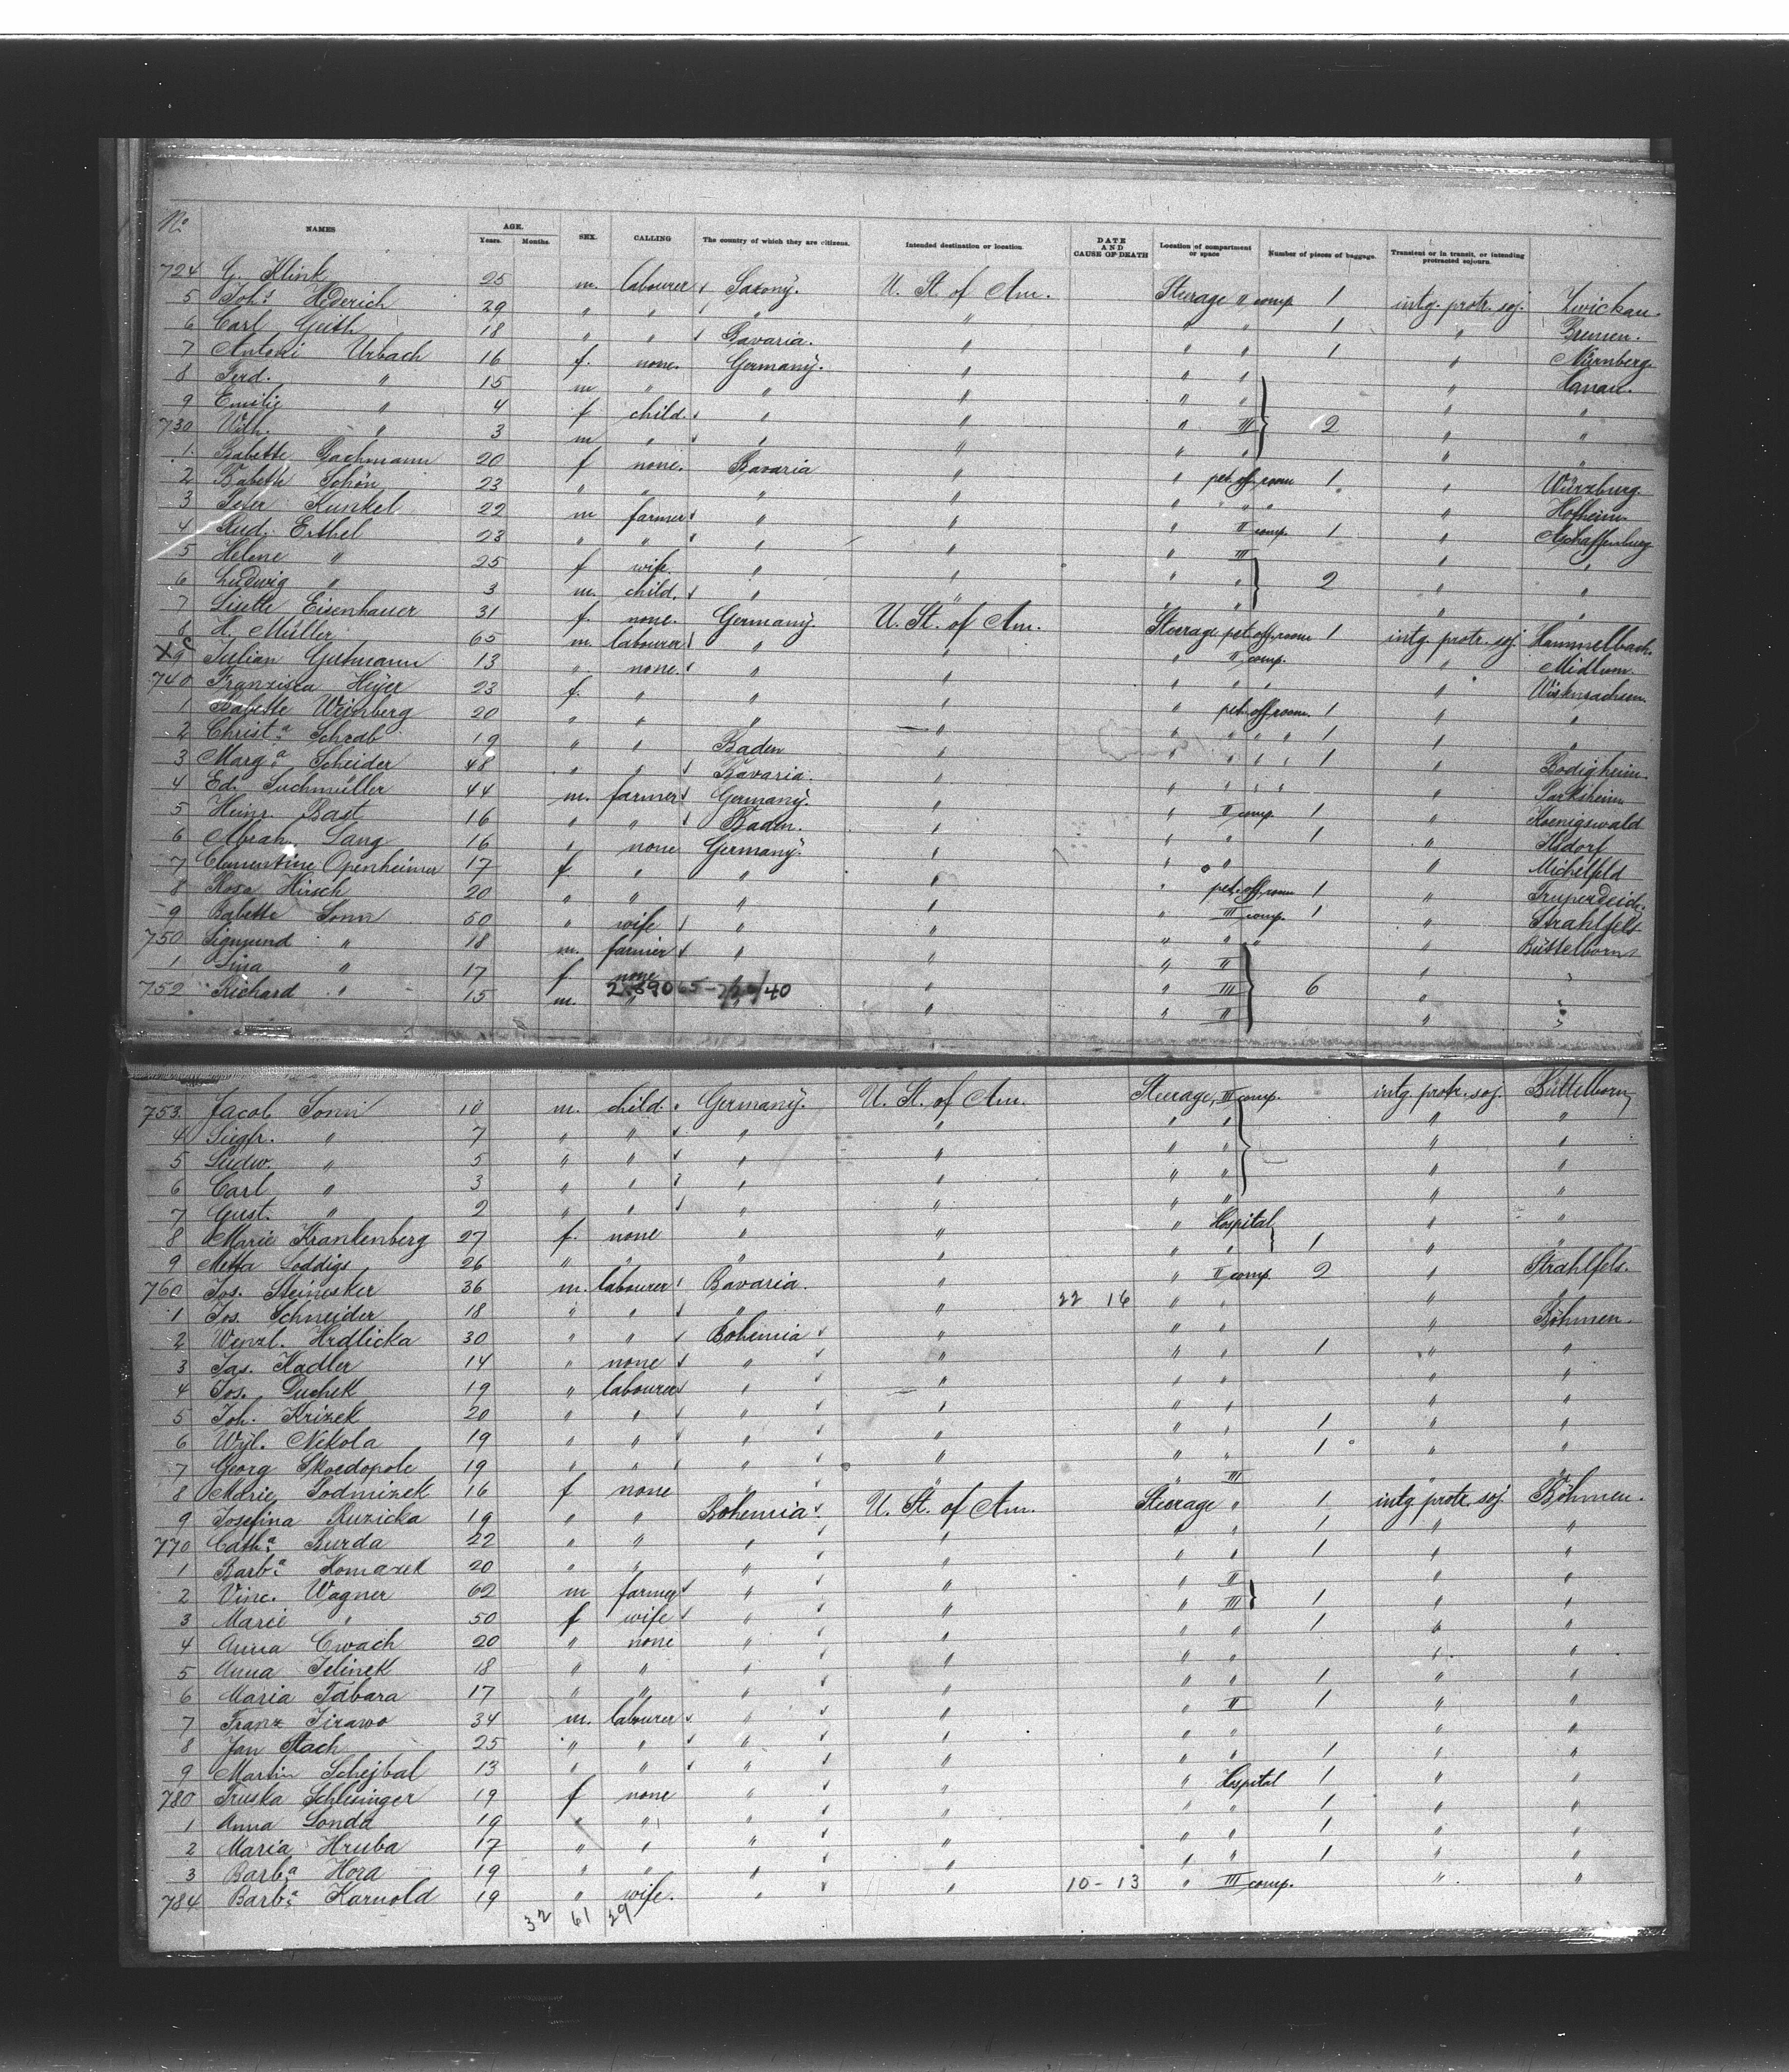 No NAMES AGE. Years. Months. SEX. CALLING The country of which they are citizens. Intended destination or location. DATE AND CAUSE OF DEATH Location of compartment or space Number of pieces of baggage. Transient or in transit, or intending protracted sojourn.
724 G. Klink 25 m. labourer Saxony. U. St. of Am. Steerage II comp. 1 intg. protr. soj. Zwickau.
5 Joh.s Hederich 29 " " " " " " 1 " Bremen.
6 Carl Geith 18 " " Bavaria. " " " 1 " Nürnberg.
7 Antoni Urbach 16 f. none. Germany. " " " " Hanau.
8 Ferd. " 15 m " " " " " " "
9 Emilie " 4 f child. " " " III 2 " "
730 Wilh. " 3 m " " " " " " "
1 Babette Bachmann 20 f none. Bavaria " " pet. off. room 1 " Würzburg.
2 Babette Schön 23 " " " " " " " " Hofheim
3 Peter Kunkel 22 m farmer " " " II comp. 1 " Aschaffenburg
4 Rud. Erthel 23 " " " " " III " "
5 Helene " 25 f wife. " " " " 2 " "
6 Ludwig " 3 m. child. " " " " "
7 Lisette Eisenhauer 31 f. none. Germany. U. St. of Am. Steerage pet. off. room 1 intg. protr. soj. Hammelbach.
8 H. Müller 65 m. labourer " " " II comp. " Midlum.
X 9 Julian Gutmann 13 " none. " " " " "
740 Franzisca Heyer 23 f. " " " " pet. off. room. 1 " "
1 Babette Weinberg 20 " " " " " " " " 1 " "
2 Christ.a Schrab 19 " " Baden " " " " " 1 " Bödigheim
3 Marg.a Scheider 48 " " Bavaria. " " " " " "
4 Ed. Suchmüller 44 m. farmer Germany. " " II comp. 1 " Koenigswald
5 Heinr. Bast 16 " " Baden. " " " 1 "
6 Abrah. Lang 16 " none Germany. " " " " Michelfeld
7 Clementine Openheimer 17 f. " " " " pet. off. room 1 "
8 Rosa Hirsch 20 " " " " " III comp. 1 " Strahlfels
9 Babette Sonn 50 " wife " " " " " " Büttelborn
750 Sigmund " 18 m. farmer " " " II " "
1 Lina " 17 f. none " " III 6 " "
752 Richard " 15 m. " " " " II " "
753. Jacob Sonn 10 m. child. Germany. U. St. of Am. Steerage, III comp. intg. protr. soj. Büttelborn
4 Siegfr. " 7 " " " " " " " "
5 Ludw. " 5 " " " " " " " "
6 Carl " 3 " " " " " " " "
7 Gust. " 2 " " " " " " " "
8 Marie Krankenberg 27 f. none " " " Hospital " "
9 Metta Coddigs 26 " " " " " " 1 " "
760 Jos. Steinesker 36 m. labourer Bavaria. " " II comp. 2 " Strahlfels.
1 Jos. Schneider 18 " " " " 22 16 " " " "
2 Wenzl. Hrdlicka 30 " " Bohemia " " " 1 " Böhmen.
3 Jas. Kadler 14 " none " " " " " "
4 Jos. Duchek 19 " labourer " " " " " "
5 Joh. Krizek 20 " " " " " " 1 " "
6 Wjl. Nekola 19 " " " " " " 1 " "
7 Georg Skocdopole 19 " " " " " III " "
8 Marie Podmizek 16 f none " " " " " "
9 Josefina Ruzicka 19 " " Bohemia. U. St. of Am. Steerage " 1 intg. protr. soj. Böhmen.
770 Cath.a Burda 22 " " " " " " 1 " "
1 Barb.a Komarek 20 " " " " " " 1 " "
2 Vinc. Wagner 62 m farmer " " " II " "
3 Marie " 50 f wife " " " III 1 " "
4 Anna Cwach 20 " none " " " " 1 " "
5 Anna Jelinek 18 " " " " " " " "
6 Maria Tabara 17 " " " " " " 1 " "
7 Franz Jirawo 34 m. labourer " " " II 1 " "
8 Jan Stach 25 " " " " " " " "
9 Martin Schejbal 13 " " " " " " 1 " "
780 Truska Schlesinger 19 f none " " " Hospital 1 " "
1 Anna Sonda 19 " " " " " " 1 " "
2 Maria Hruba 17 " " " " " " 1 " "
3 Barb.a Hora 19 " " " " " " 1 " "
784 Barb.a Karnold 19 " wife. " " 10-13 " III comp. " "
32 61 29